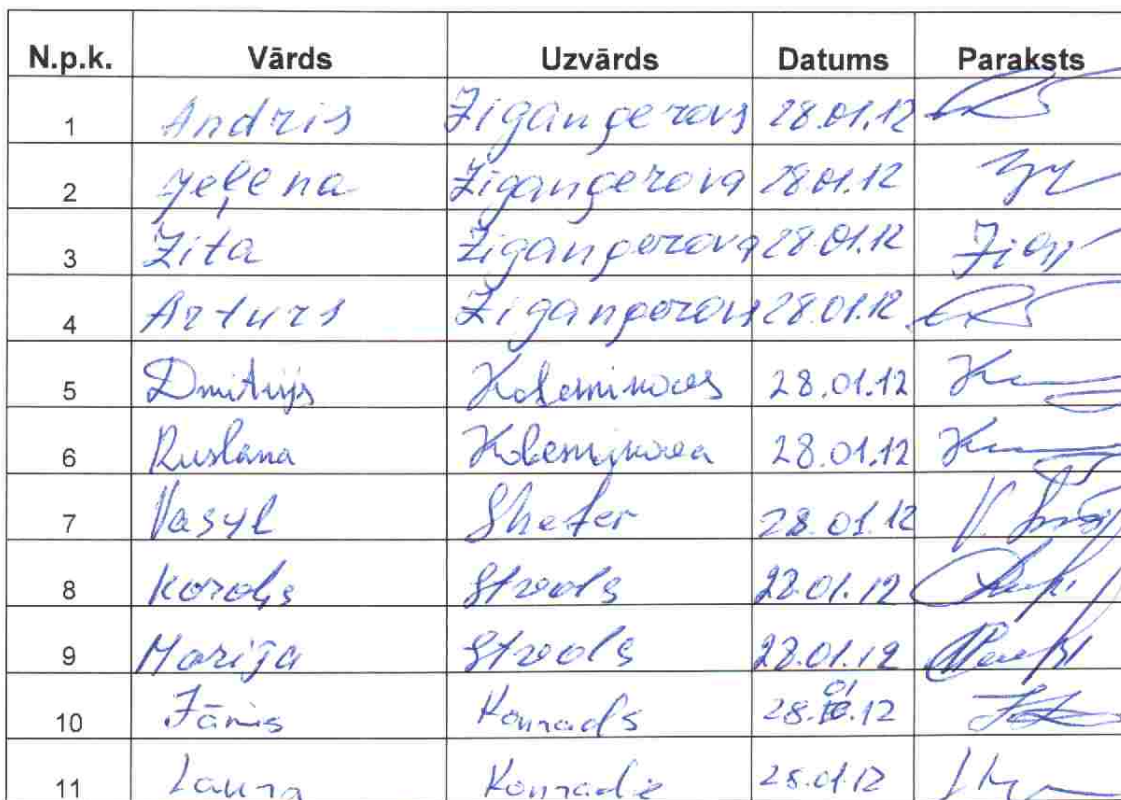 N.p.k. Vārds Uzvārds Datums Paraksts
1 Andris Zigangerovs 28.01.12
2 Jeļena Zigangerova 28.01.12
3 Zita Zigangerova 28.01.12
4 Arturs Zigangerovs 28.01.12
5 Dmitrijs Kolesnikovs 28.01.12
6 Ruslana Kolesnikova 28.01.12
7 Vasyl Shefer 28.01.12
8 Karolis Strods 28.01.12
9 Marija Strods 28.01.12
10 Jānis Konrads 28.01.12
11 Laura Konrade 28.01.12